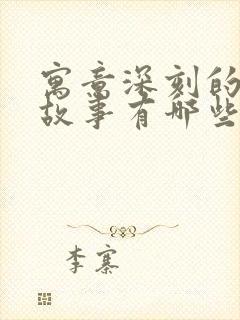 寓意深刻的
故事有哪些
李寨